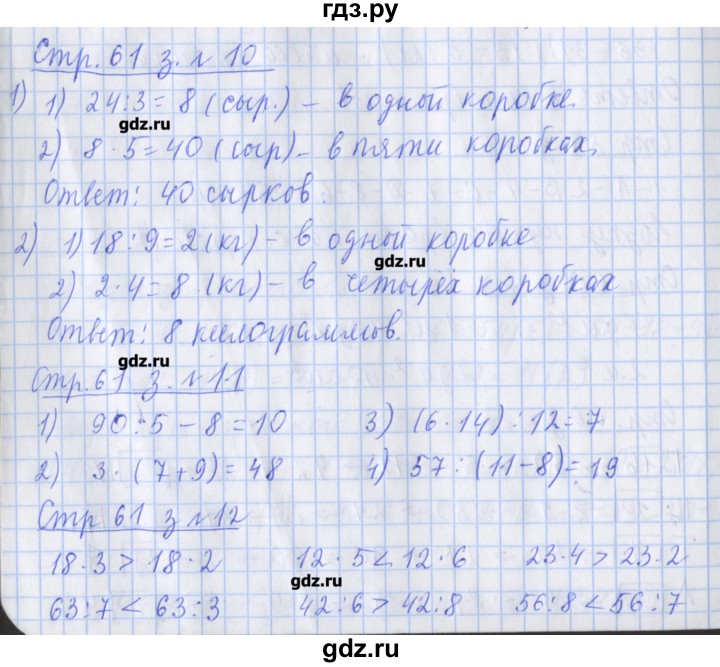 гдз.ру
Стр. 61 з. № 10
1) 1) 24:3=8 (сыр.) – в одной коробке.
gdz.ru
2) 8·5=40 (сыр) – в пяти коробках,
Ответ: 40 сырков.
2) 1) 18:9=2 (кг) – в одной коробке
gdz.ru
2) 2·4=8 (кг) – в четырёх коробках
Ответ: 8 килограммов.
gdz.ru
Стр. 61 з. № 11
1) 90:5-8=10 3) (6·14):12=7
2) 3·(7+9)=48 4) 57:(11-8)=19
Стр 61 з № 12
18·3>18·2 12·5<12·6 23·4>23·2
gdz.ru
63:7<63:3 42:6>42:8 56:8<56:7
gdz.ru